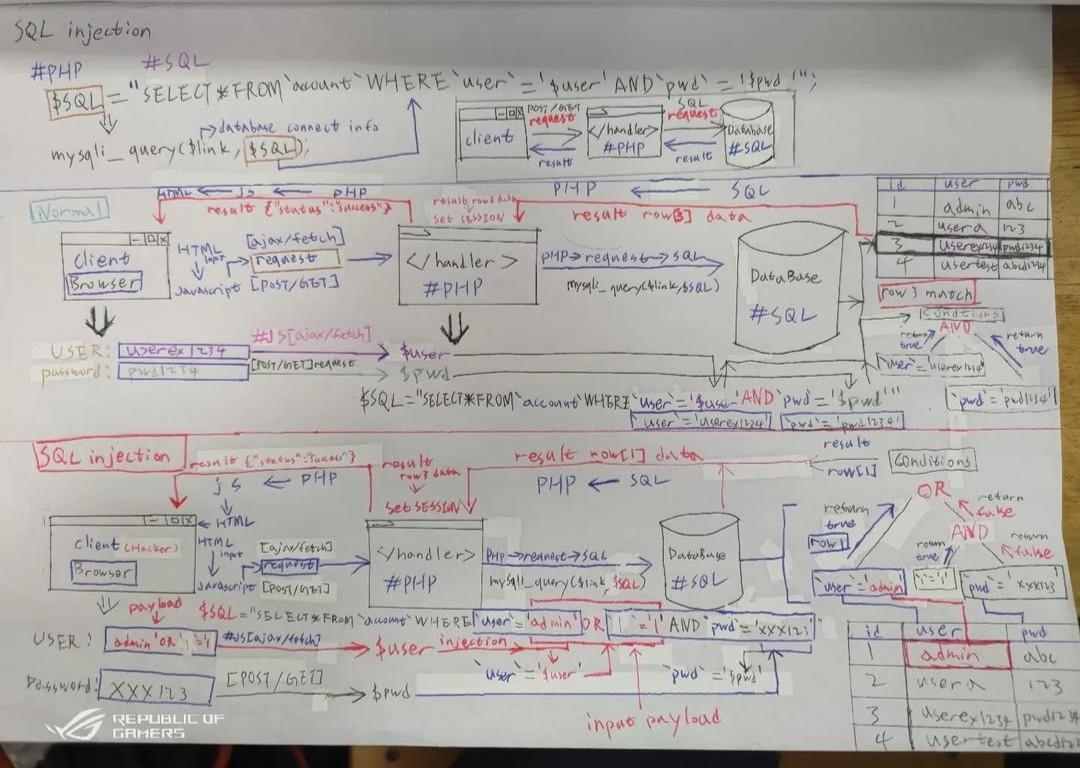 SQL injection
#PHP #SQL
$SQL="SELECT*FROM`account`WHERE`user`='$user'AND`pwd`='$pwd'";
database connect info
mysqli_query($link, $SQL);
client
POST/GET
request
result
</handler>
#PHP
SQL
request
result
DataBase
#SQL
Normal
HTML ← js ← PHP
result {"status":"success"}
result row3 data
set SESSION
PHP ← SQL
result row[3] data
id user pwd
1 admin abc
2 usera 123
3 userex1234 pwd1234
4 usertest abcd1234
row 3 match
client
Browser
HTML
input
Javascript
[ajax/fetch]
request
[POST/GET]
</handler>
#PHP
PHP→request→SQL
mysqli_query($link,$SQL)
DataBase
#SQL
Conditions
AND
return true
return true
`user`='userex1234'
`pwd`='pwd1234'
USER: userex1234 #JS[ajax/fetch] $user
password: pwd1234 [POST/GET]request $pwd
$SQL="SELECT*FROM`account`WHERE`user`='$user'AND`pwd`='$pwd'"
`user`='userex1234' `pwd`='pwd1234'
SQL injection
result {"status":"success"}
js ← PHP
result
row3 data
set SESSION
result row[1] data
PHP ← SQL
result
row[1]
Conditions
OR
return false
AND
return true
row1
return true
false
`user`='admin'
'1'='1'
`pwd`='XXX123'
client (Hacker)
Browser
HTML
HTML
input
Javascript
[ajax/fetch]
request
[POST/GET]
</handler>
#PHP
PHP→request→SQL
mysqli_query($link,$SQL)
DataBase
#SQL
payload
$SQL="SELECT*FROM`account`WHERE`user`='admin'OR'1'='1'AND`pwd`='XXX123'
USER: admin'OR'1'='1 #JS[ajax/fetch] $user injection
`user`='$user' `pwd`='$pwd'
Password: XXX123 [POST/GET] $pwd
input payload
id user pwd
1 admin abc
2 usera 123
3 userex1234 pwd1234
4 usertest abcd12
REPUBLIC OF
GAMERS